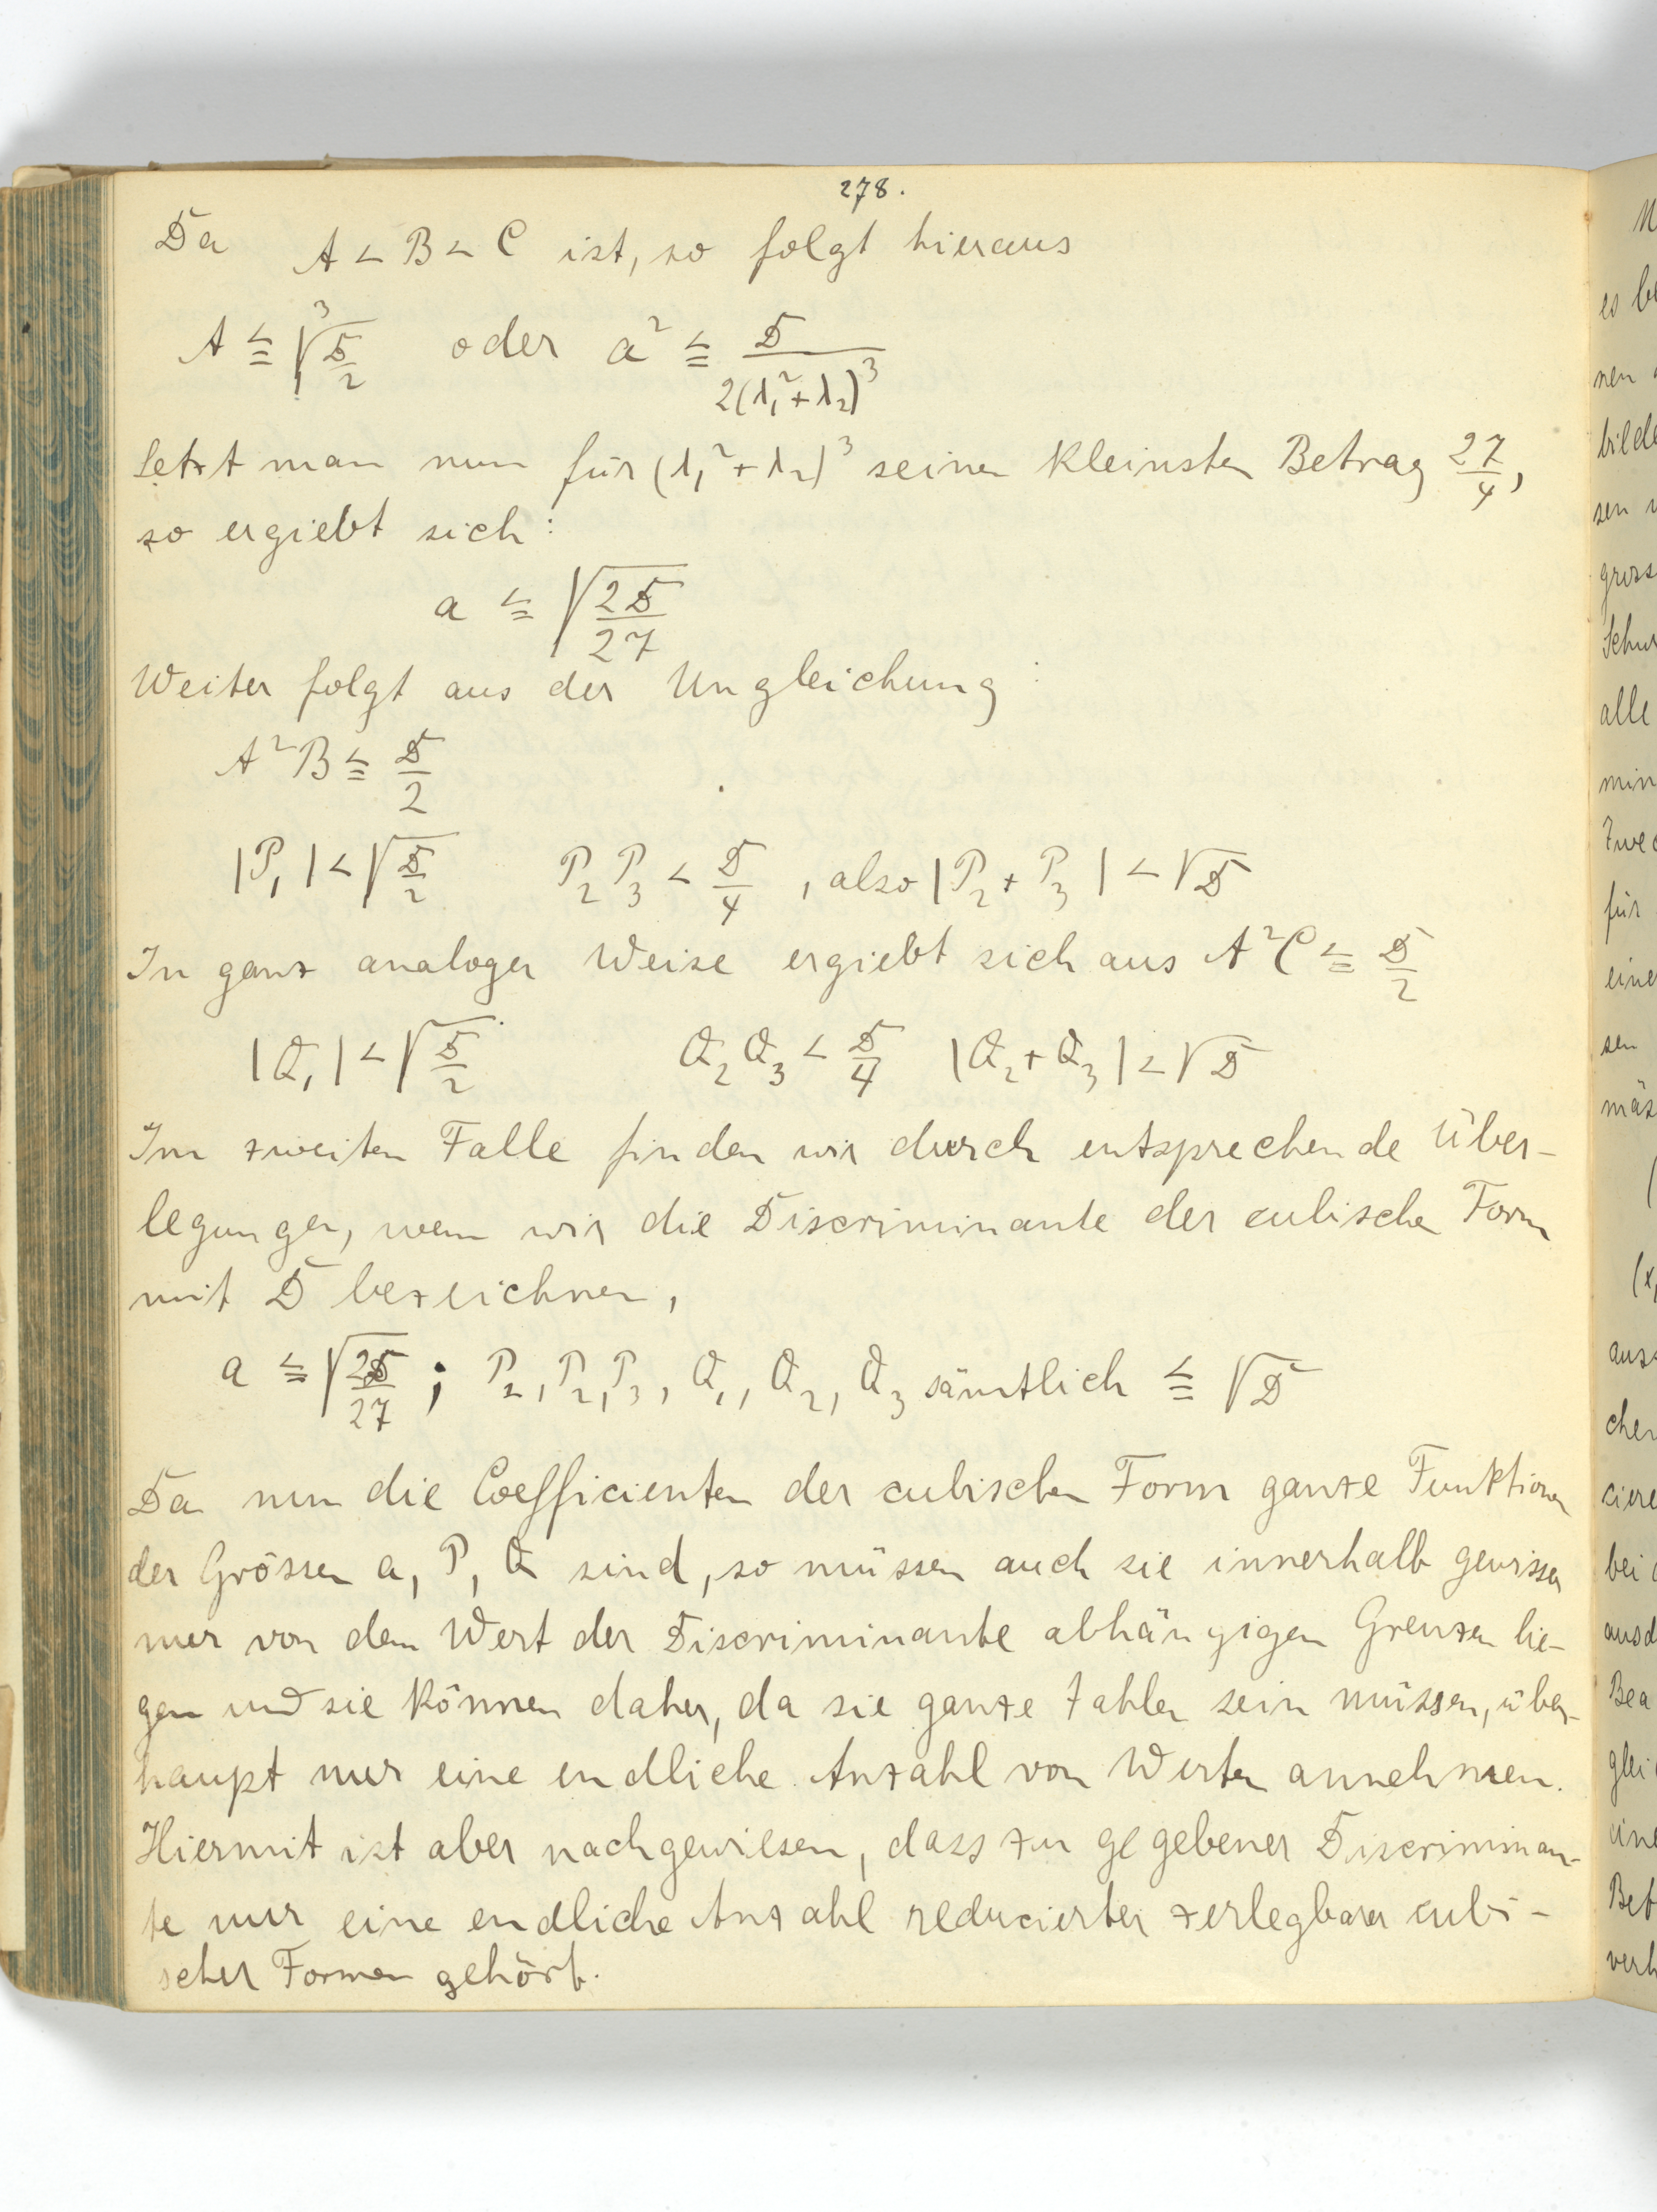 278.
Da A < B < C ist, so folgt hieraus
A ≦ ∛(D/2) oder a² ≦ D/(2(λ₁²+λ₂)³)
Setzt man nun für (λ₁²+λ₂)³ seinen kleinsten Betrag 27/4,
so ergiebt sich:
a ≦ √(2D/27)
Weiter folgt aus der Ungleichung:
A²B ≦ D/2
|P₁| < √(D/2) P₂P₃ < D/4, also |P₂+P₃| < √D
In ganz analoger Weise ergiebt sich aus A²C ≦ D/2
|Q₁| < √(D/2) Q₂Q₃ < D/4 |Q₂+Q₃| < √D
Im zweiten Falle finden wir durch entsprechende Über-
legungen, wenn wir die Discriminante der cubischen Form
mit D bezeichnen,
a ≦ √(2D/27); P₁, P₂, P₃, Q₁, Q₂, Q₃ sämtlich ≦ √D
Da nun die Coefficienten der cubischen Form ganze Funktionen
der Grössen a, P, Q sind, so müssen auch sie innerhalb gewisser
nur von dem Wert der Discriminante abhängigen Grenzen lie-
gen und sie können daher, da sie ganze Zahlen sein müssen, über-
haupt nur eine endliche Anzahl von Werten annehmen.
Hiermit ist aber nachgewiesen, dass zu gegebener Discriminan-
te nur eine endliche Anzahl reducierter zerlegbarer cubi-
scher Formen gehört.